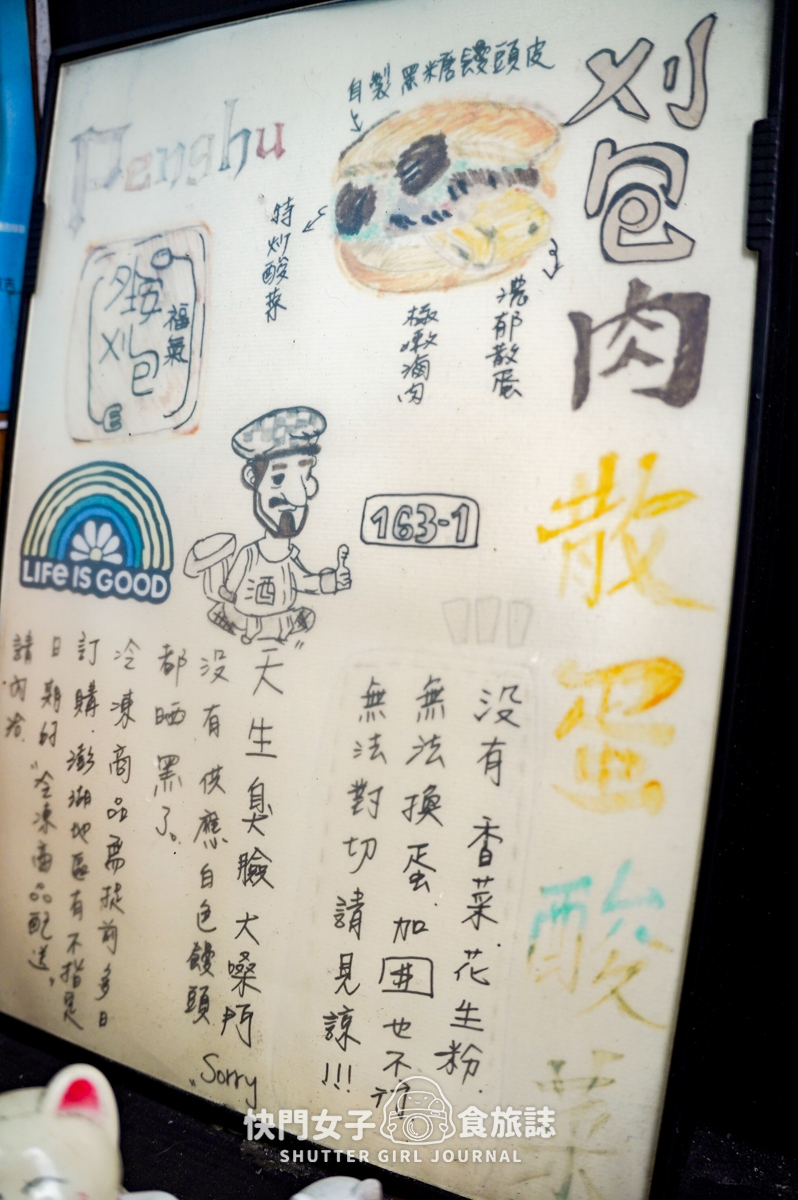 刈包肉散蛋酸菜
自製黑糖饅頭皮
濃郁散蛋
極嫩滷肉
特炒酸菜
Penghu
福氣
刈包
163-1
酒
LIFE IS GOOD
沒有香菜.花生粉.
無法換蛋.加囲也不
無法對切請見諒!!!
"天生臭臉大嗓門 Sorry"
沒有供應白色饅頭
都晒黑了。
冷凍商品需提前多日
訂購.澎湖地區有不指定
日期的"冷凍商品配送"
請內洽.
快門女子食旅誌
SHUTTER GIRL JOURNAL